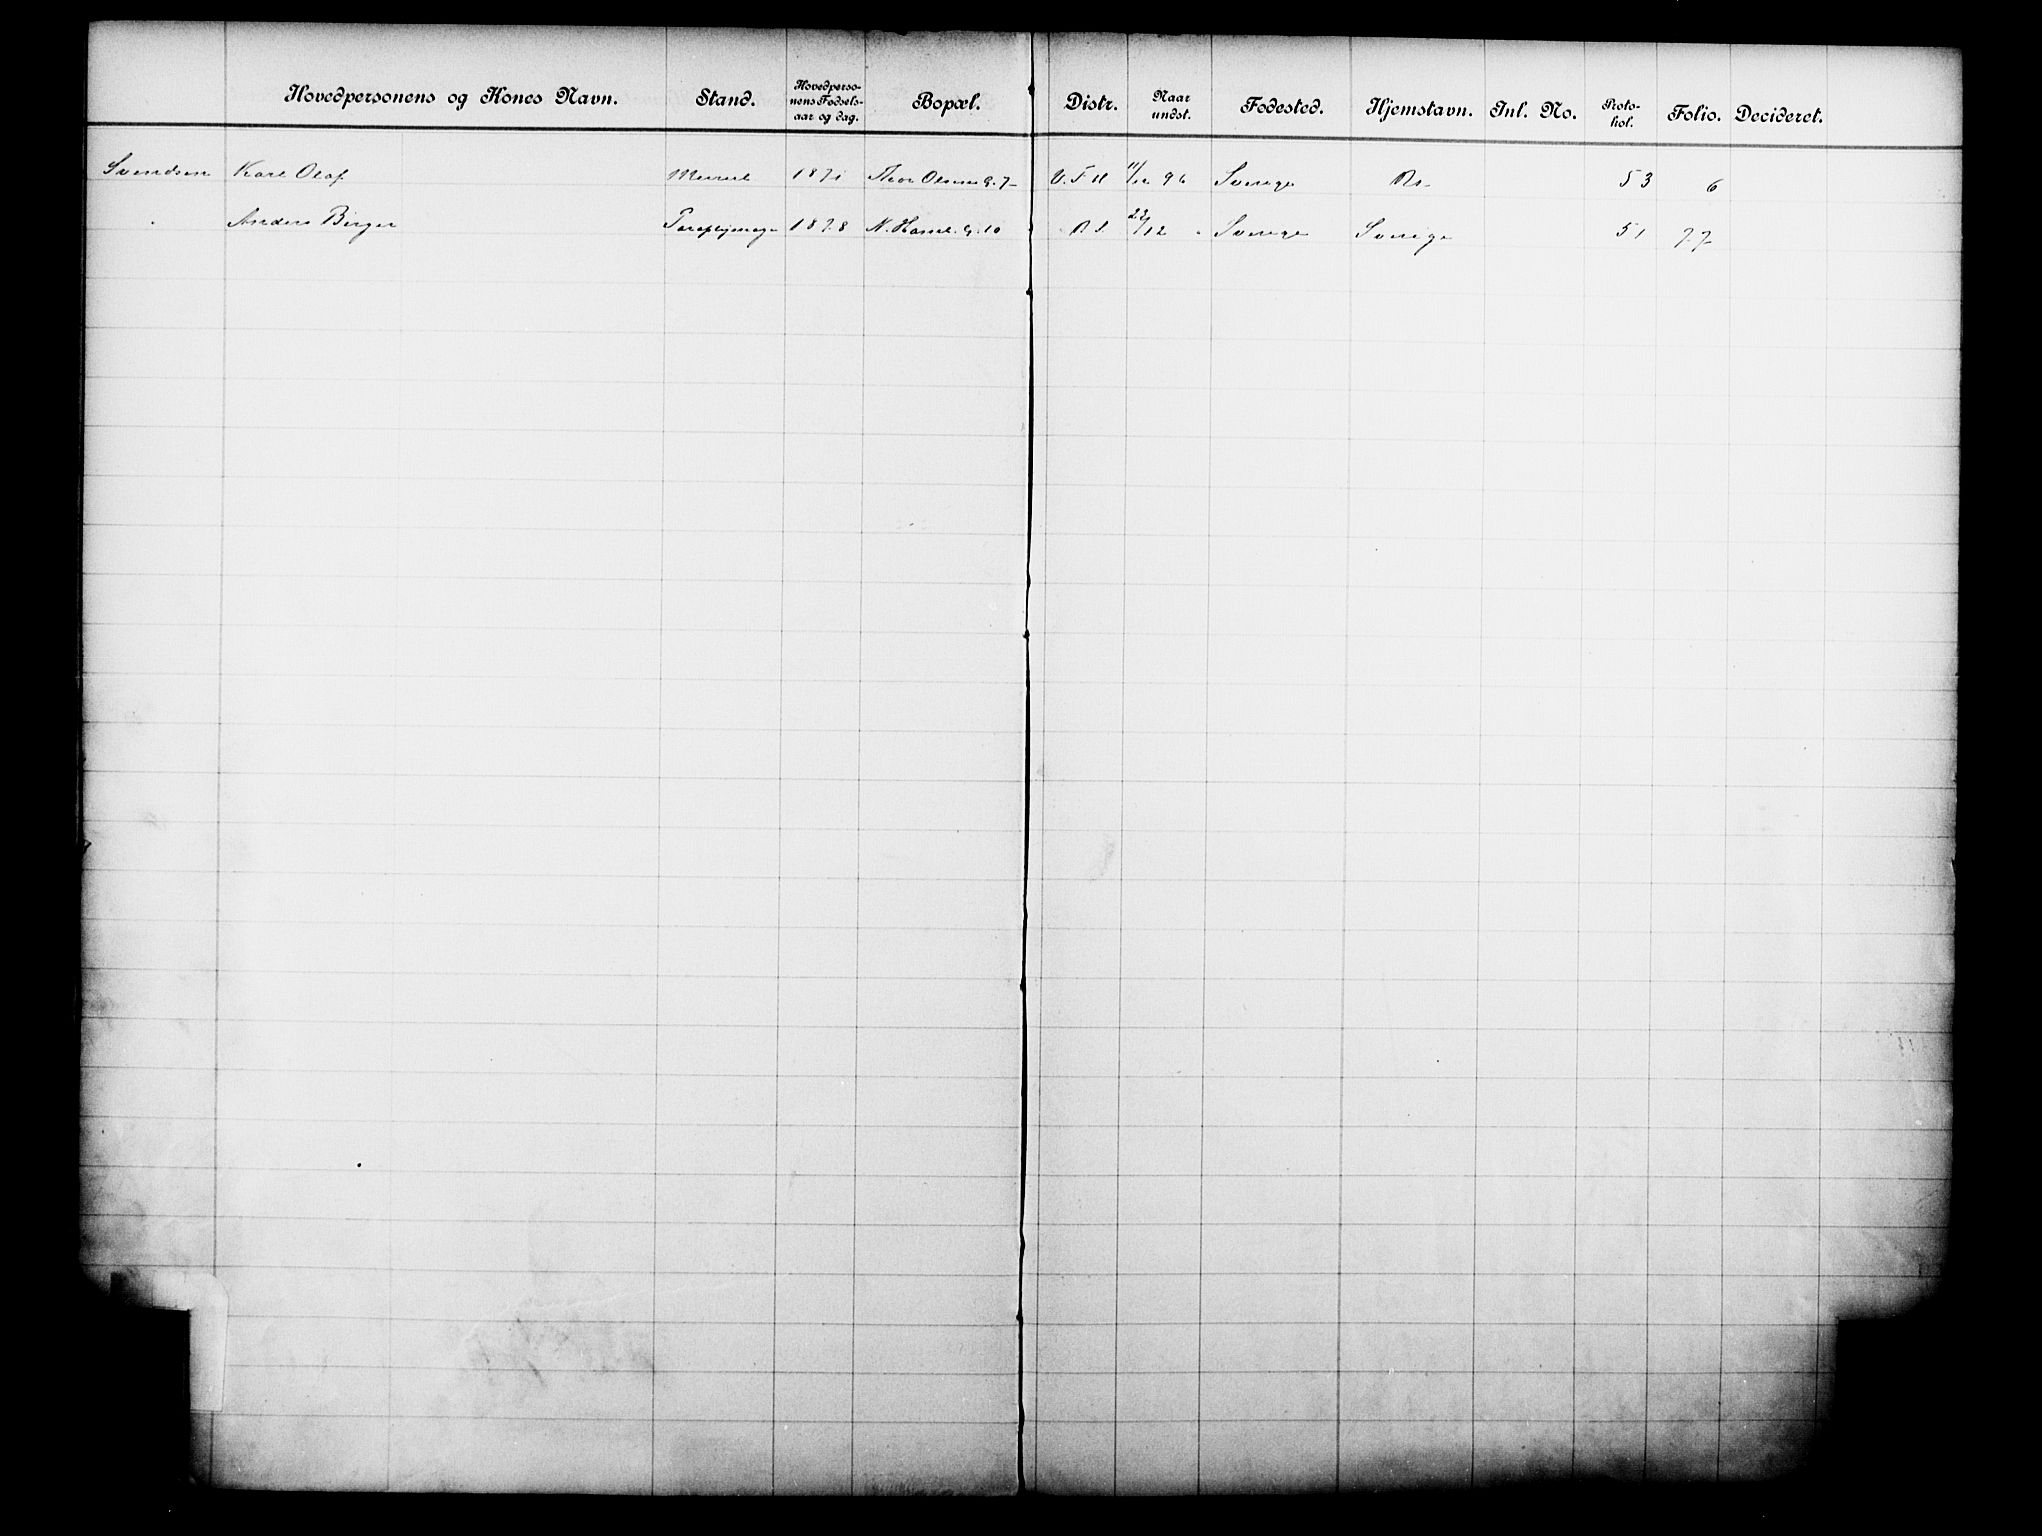 Hovedpersonens og Kones Navn. Stand. Hovedperso-nens Fødsels-aar og dag. Bopæl. Distr. Naar undst. Fødested. Hjemstavn. Inl. No. Proto-kol. Folio. Decideret.
Svendsen Karl Olaf Murer 1871 Thor Olsens G. 7 V. F. H 11/12 96 Sverige 53 6
Anders Birger 1878 N. Hassel. G. 10 22/12 Sverige Sverige 51 77